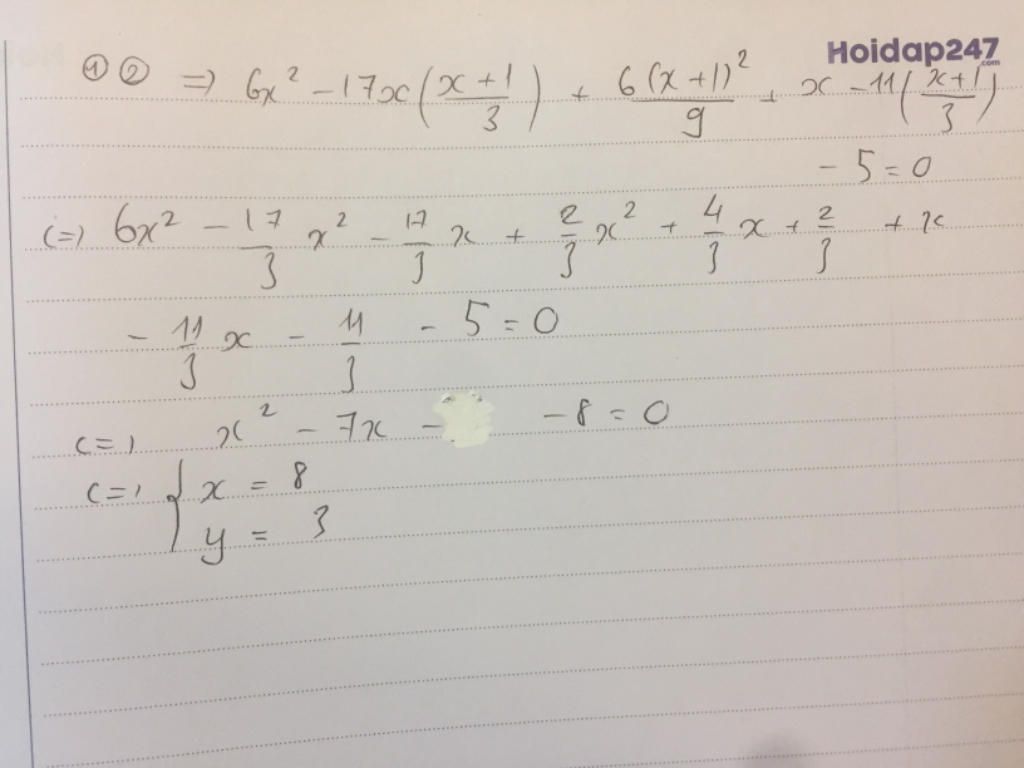 Hoidap247.com
① ② => 6x² - 17x(\frac{x+1}{3}) + \frac{6(x+1)²}{9} + x - 11(\frac{x+1}{3})
- 5 = 0
<=> 6x² - \frac{17}{3}x² - \frac{17}{3}x + \frac{2}{3}x² + \frac{4}{3}x + \frac{2}{3} + x
- \frac{11}{3}x - \frac{11}{3} - 5 = 0
<=> x² - 7x - - 8 = 0
<=> { x = 8
y = 3